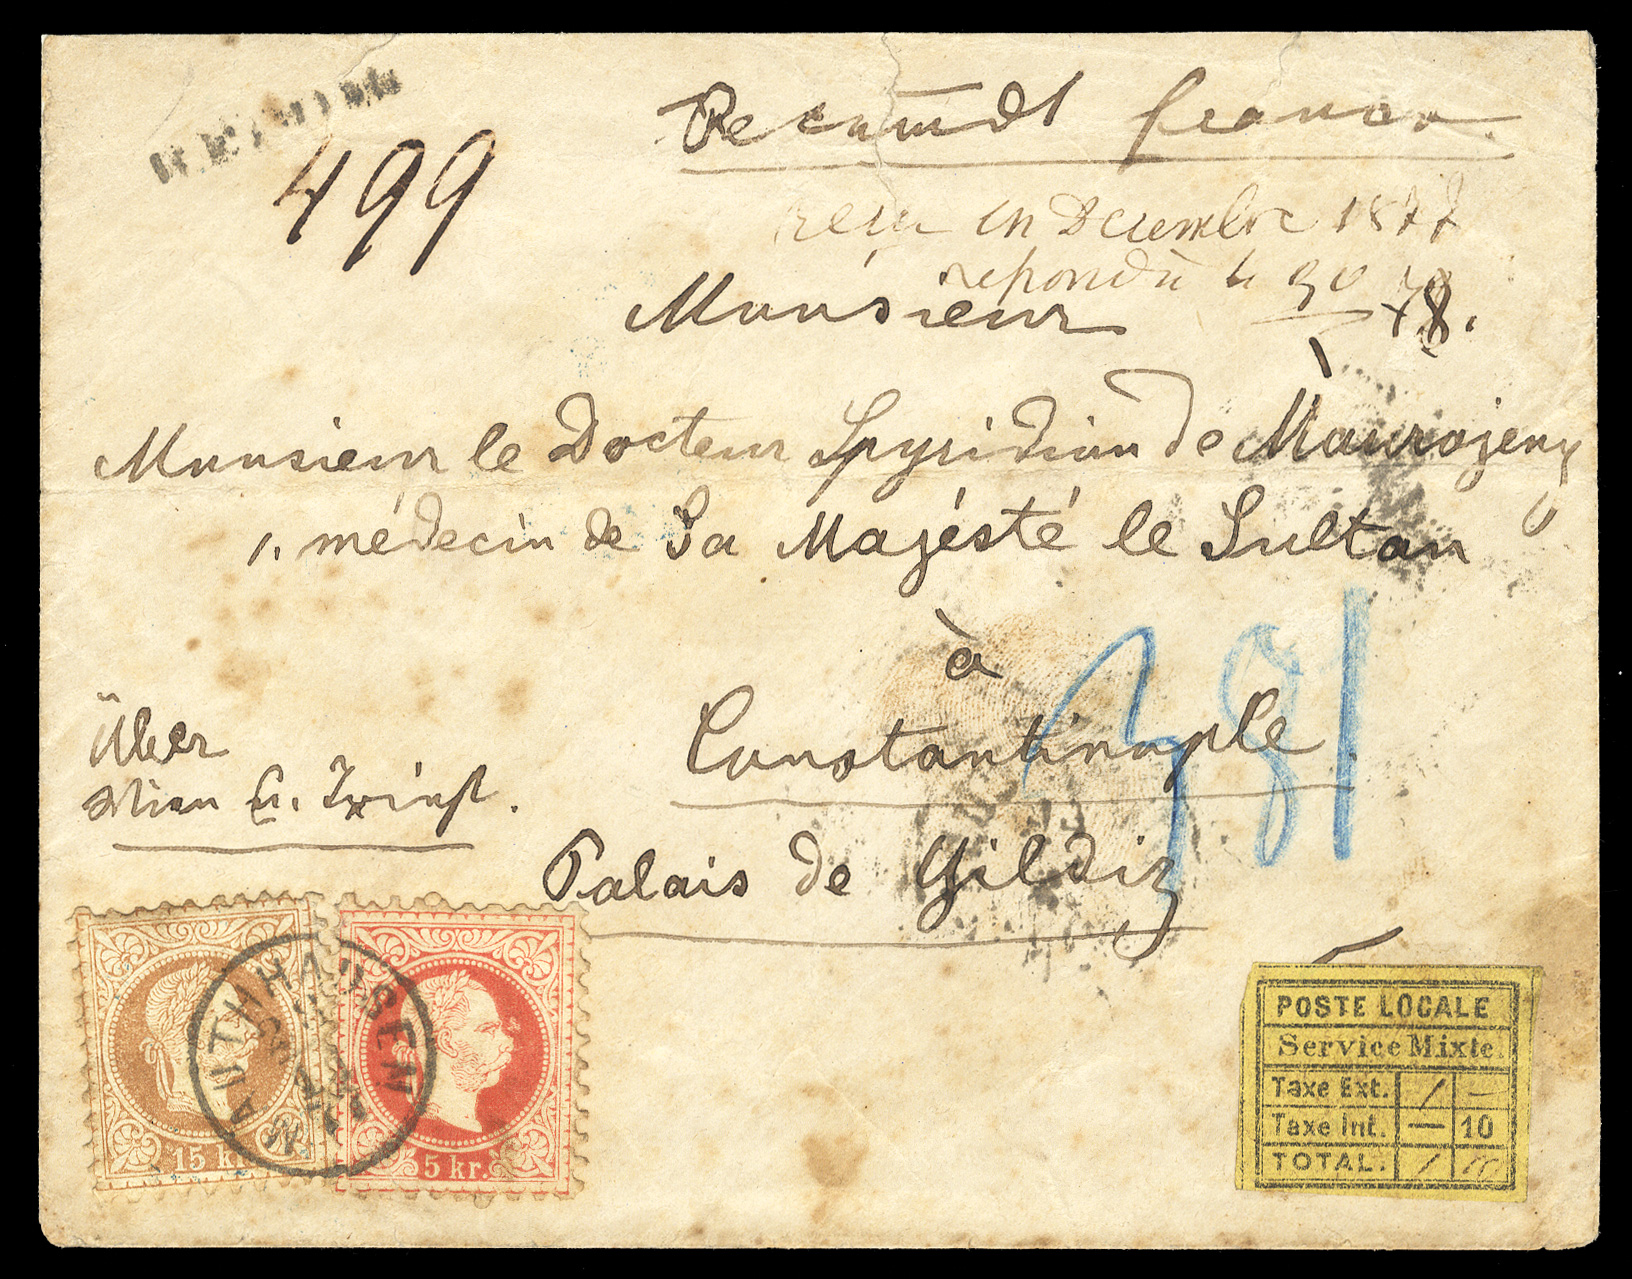 RECOM
499
Recomdt franco.
reçu en Decembre 1877
repondu le 30 78.
Monsieur
Monsieur le Docteur Spyridion de Maurojeny
1. médecin de Sa Majésté le Sultan
à
Constantinople.
Über
Wien u. Triest.
381
Palais de Yildiz
MAUTHHAUSEN
15 kr.
5 kr.
POSTE LOCALE
Service Mixte.
Taxe Ext. 1 –
Taxe Int. — 10
TOTAL. 1 10